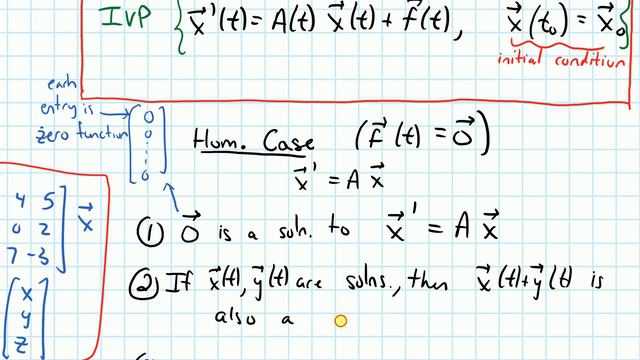 IVP { x⃗'(t) = A(t) x⃗(t) + f⃗(t), x⃗(t₀) = x⃗₀ }
initial condition
each
entry is
zero function
[ 0 0 ⋮ 0 ]
Hom. Case (f⃗(t) = 0⃗)
x⃗' = A x⃗
① 0⃗ is a soln. to x⃗' = A x⃗
② If x⃗(t), y⃗(t) are solns., then x⃗(t)+y⃗(t) is
also a
4 5
0 2
7 -3 ] x⃗
[ x
y
z ]